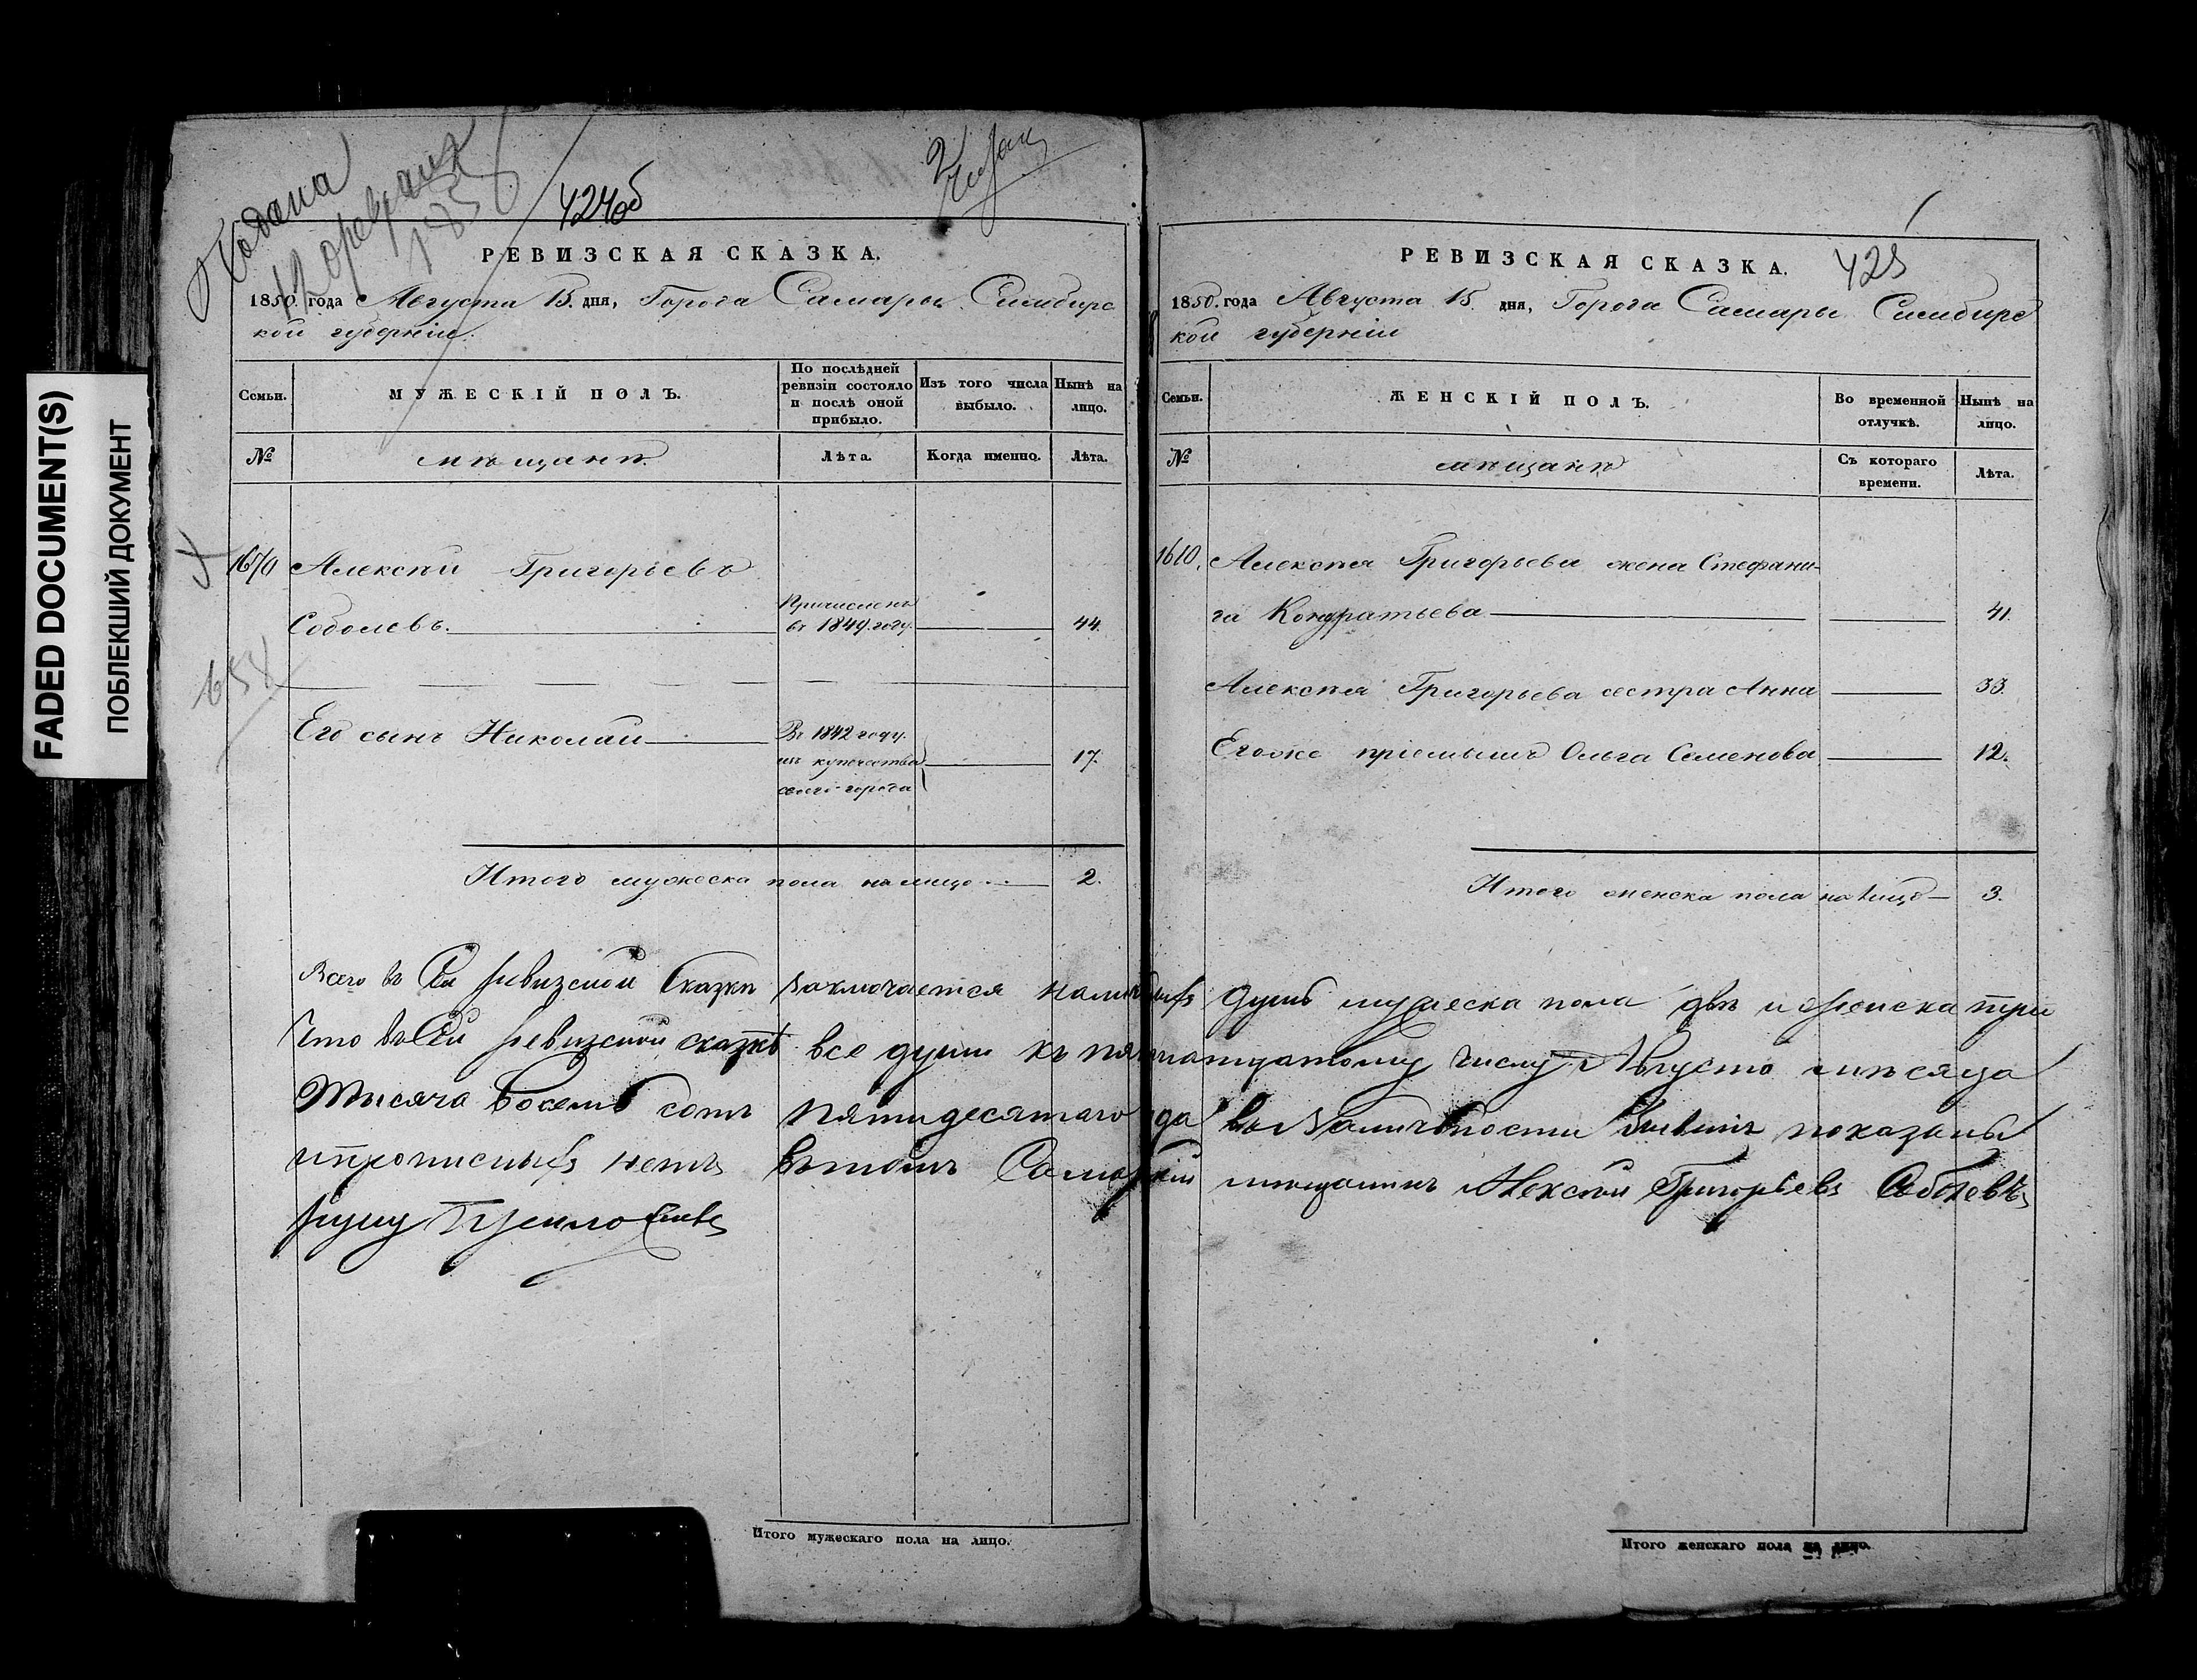 FADED DOCUMENT(S)
ПОБЛЕКШИЙ ДОКУМЕНТ
Подана
12 февраля
424об
РЕВИЗСКАЯ СКАЗКА.
1850. года Августа 15. дня, Города Самары Симбирс
кой губерніи.
Семьи.
МУЖЕСКІЙ ПОЛЪ.
По послѣдней
ревизіи состояло
и послѣ оной
прибыло.
Изъ того числа
выбыло.
Нынѣ на
лицо.
№
мѣщанѣ.
Лѣта.
Когда именно.
Лѣта.
Алексѣй Григорьевъ
Соболевъ.
Причисленъ
въ 1849. году.
44.
Его сынъ Николай
Въ 1842 году.
изъ купечества
своего города
17.
Итого мужеска пола на лицо
2.
Итого мужескаго пола на лицо.
425
РЕВИЗСКАЯ СКАЗКА.
1850. года Августа 15. дня, Города Самары Симбирс
кой губерніи
Семьи.
ЖЕНСКІЙ ПОЛЪ.
Во временной
отлучкѣ.
Нынѣ на
лицо.
№
мѣщанѣ
Съ котораго
времени.
Лѣта.
1610. Алексѣя Григорьева жена Стефани-
га Кондратьева
41.
Алексѣя Григорьева сестра Анна
33.
Егоже пріемышъ Ольга Семенова
12.
Итого женска пола на лицо
3.
Всего въ Сей ревизской Сказкѣ заключается наличныхъ душъ мужеска пола двѣ и женска три
Что въ Сей ревизской сказкѣ все души къ пятнатцатому числу Августа мѣсяца
Тысяча Восемь сотъ пятидесятаго года показаны
и прописныхъ нетъ въ томъ Самарскій мѣщанинъ Алексѣй Григорьевъ Соболевъ
руку приложилъ
Итого женскаго пола на лицо.